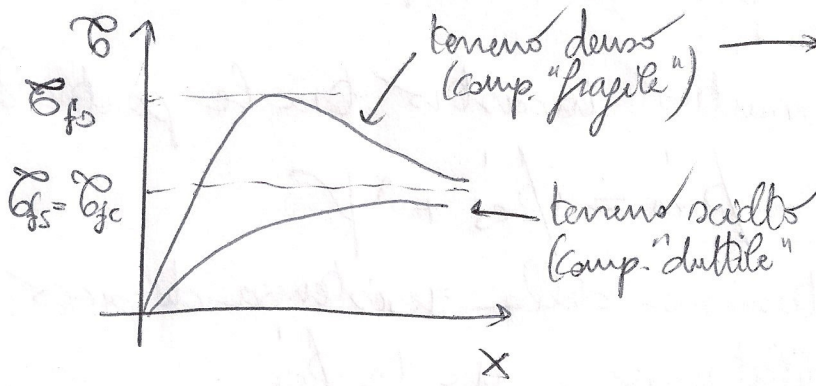 τ
τfp
τfs = τfc
terreno denso
(comp. "fragile")
terreno sciolto
(comp. "duttile"
x